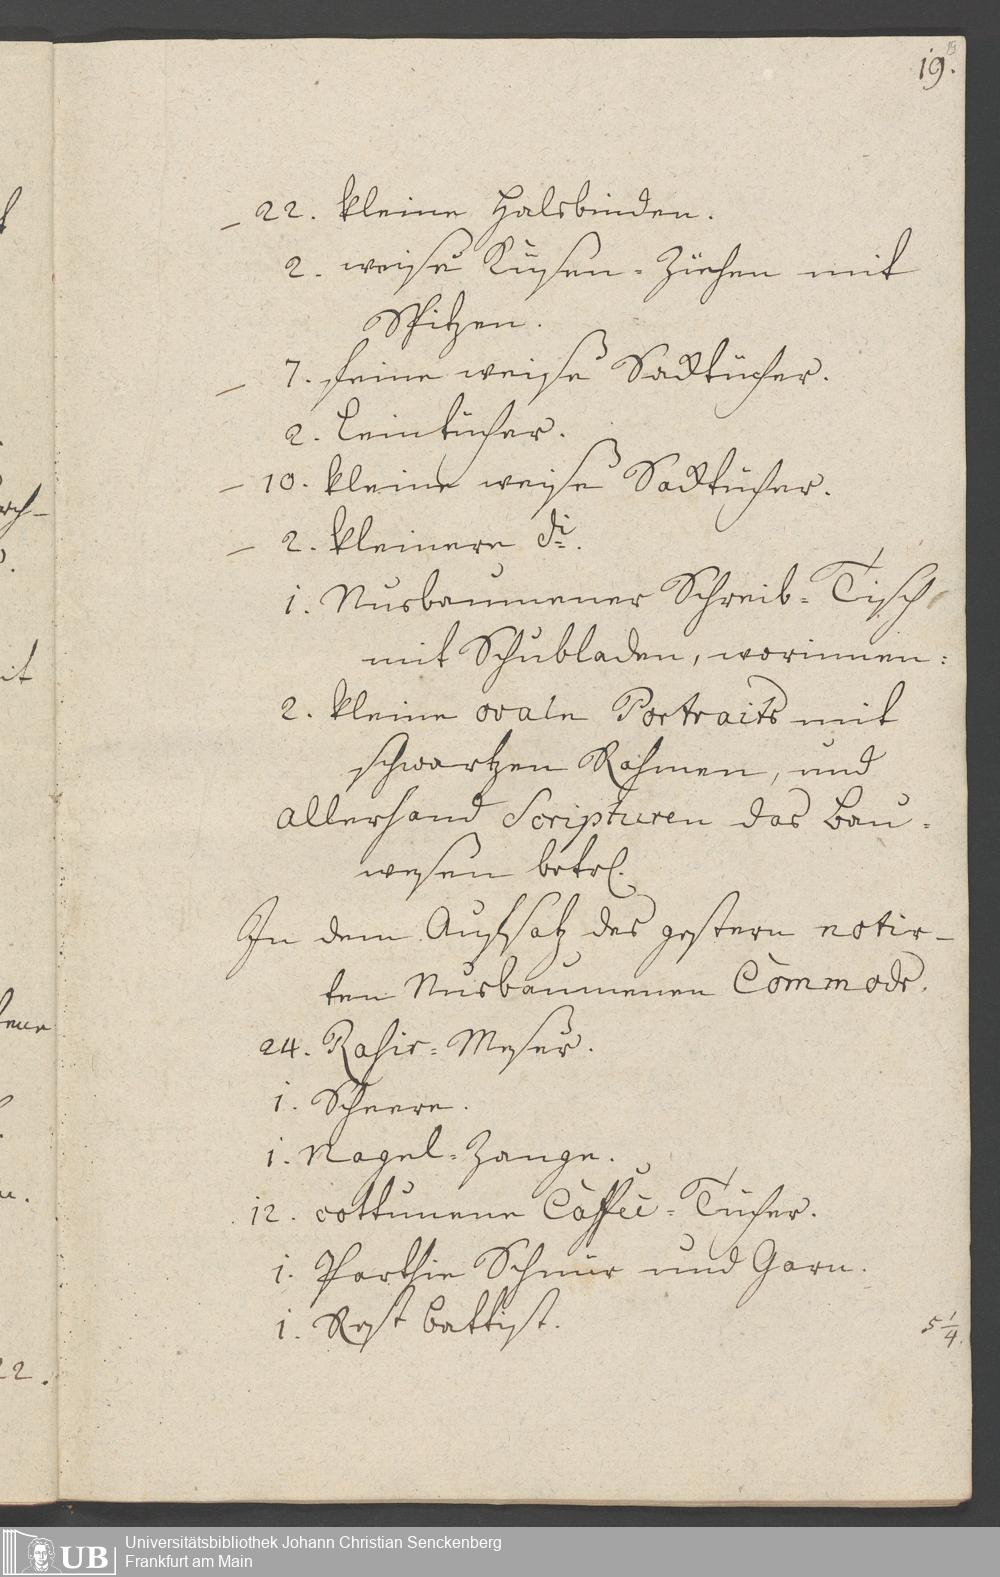 19
19.
22. kleine Halsbinden.
2. weise Küsen-Ziehen mit
Spitzen.
7. feine weise Sacktücher.
2. Leintücher.
10. kleine weise Sacktücher.
2. kleinere di.
1. Nusbaumener Schreib-Tisch
mit Schubladen, worinnen:
2. kleine ovale Portraits mit
schwartzen Rahmen, und
allerhand Scripturen das Bau-
wesen betrl.
In dem Auffsatz des gestern notir-
ten Nusbaumenen Commods.
24. Rasir-Meser.
1. Scheere.
1. Nagel-Zange.
12. cottunene Caffee-Tücher.
1. Parthie Schnür und Garn.
1. Rest Battist.
5 1/4.
rch-
it
22.
UB
Universitätsbibliothek Johann Christian Senckenberg
Frankfurt am Main